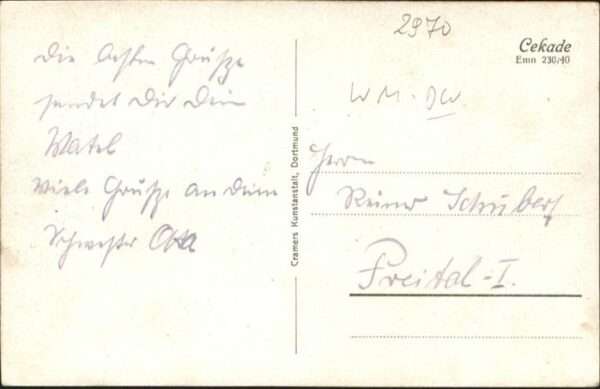 2970
Cekade
Emn 230/40
Die besten Grüße
sendet Dir Dein
Viele Grüße an Deine
Schwester
Cramers Kunstanstalt, Dortmund
Herrn
Reiner Schubert
Freital-I.